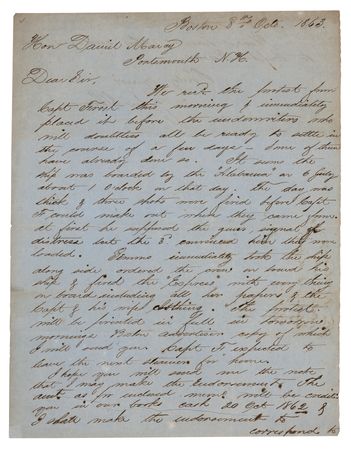 Boston 8th Octr. 1863.
Hon Daniel Marcy
Portsmouth N.H.
Dear Sir,
We recd the protest from
Capt Frost this morning & immediately
placed it before the underwriters who
will doubtless all be ready to settle in
the course of a few days - Some of them
have already done so. It seems the
ship was boarded by the "Alabama" on 6 July
about 1 O'clock on that day. The day was
thick & three shots were fired before Capt
F could make out where they came from.
at first he supposed the guns signals of
distress but the 3d convinced him they were
loaded. Semmes immediately took the ship
along side ordered the crew on board his
ship & fired the "Express" with every thing
on board including all her papers & the
Capt & his wife's clothing. The protest
will be printed in full in tomorrow
mornings Boston Advertiser copy of which
I will send you. Capt F. expected to
leave the next steamer for home.
I hope you will send me the note
that I may make the endorsement. The
amt as per enclosed memo will be credited
you in our books cash 20 Oct 1862 &
I shall make the endorsement to
correspond to